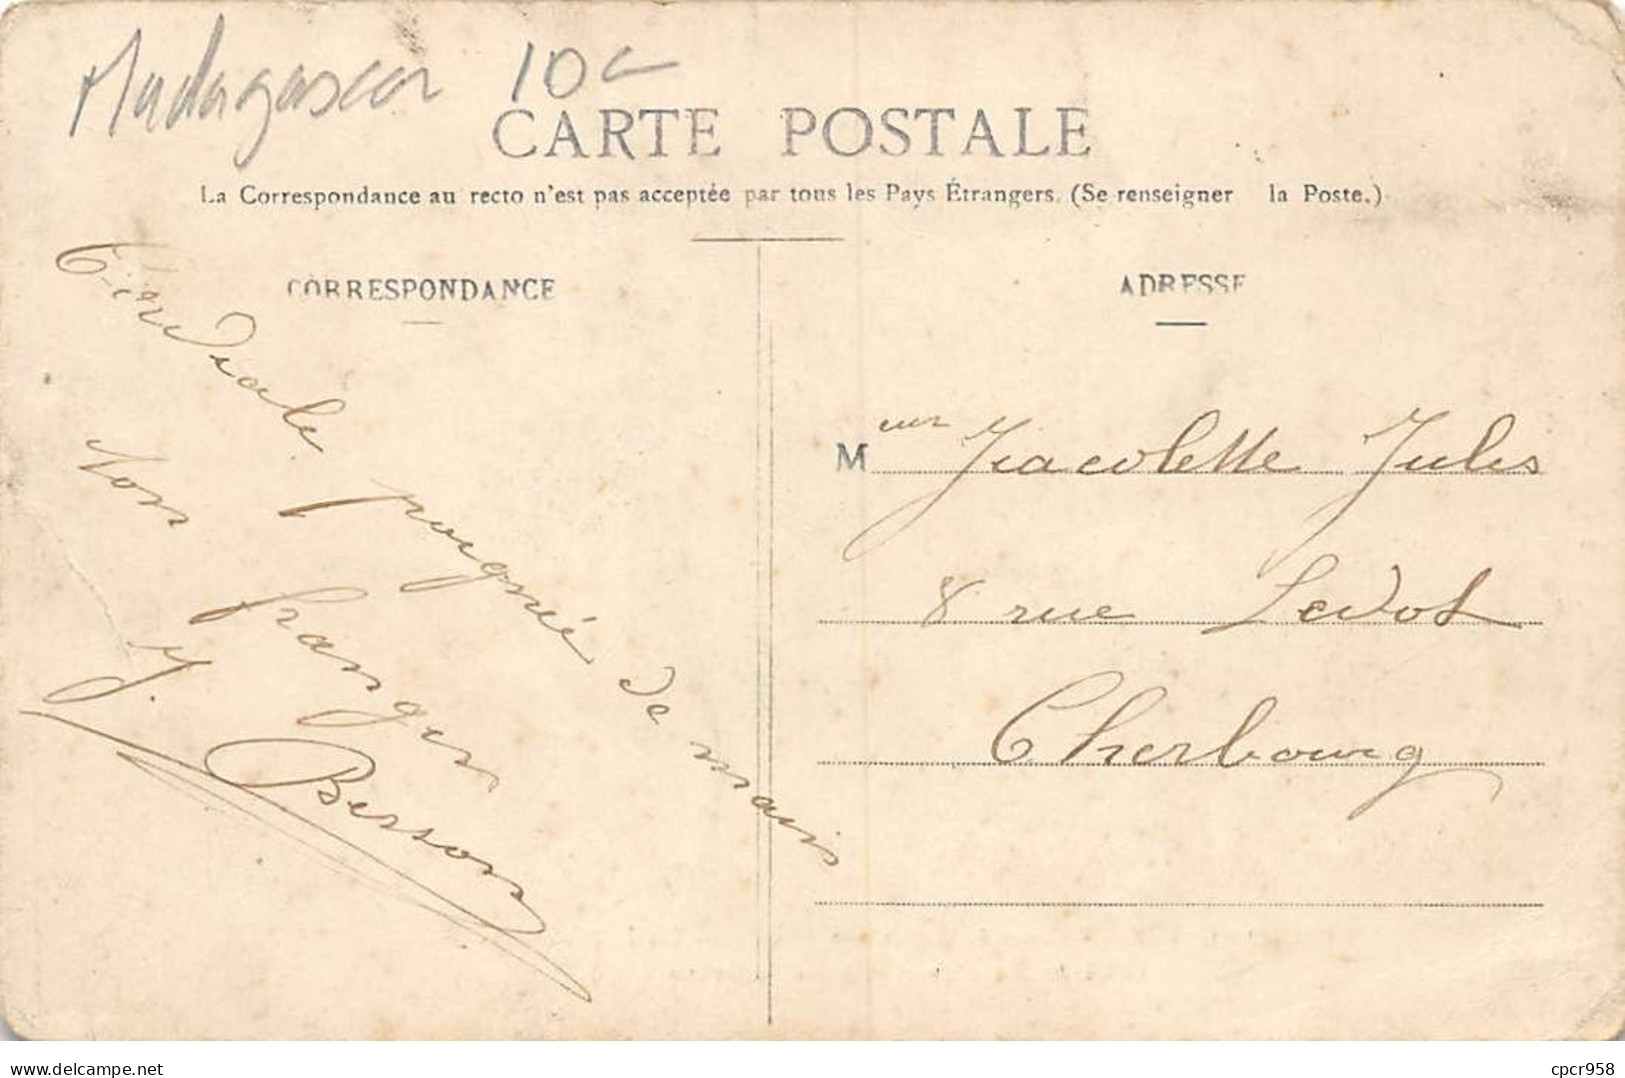 Madagascar 10c
CARTE POSTALE
La Correspondance au recto n'est pas acceptée par tous les Pays Étrangers. (Se renseigner la Poste.)
CORRESPONDANCE
Cordiale poignée de main
Ton frangin
J. Besson
ADRESSE
Meur Jiacolette Jules
8 rue Ledot
Cherbourg
Website : https://www.delcampe.net
cpcr958